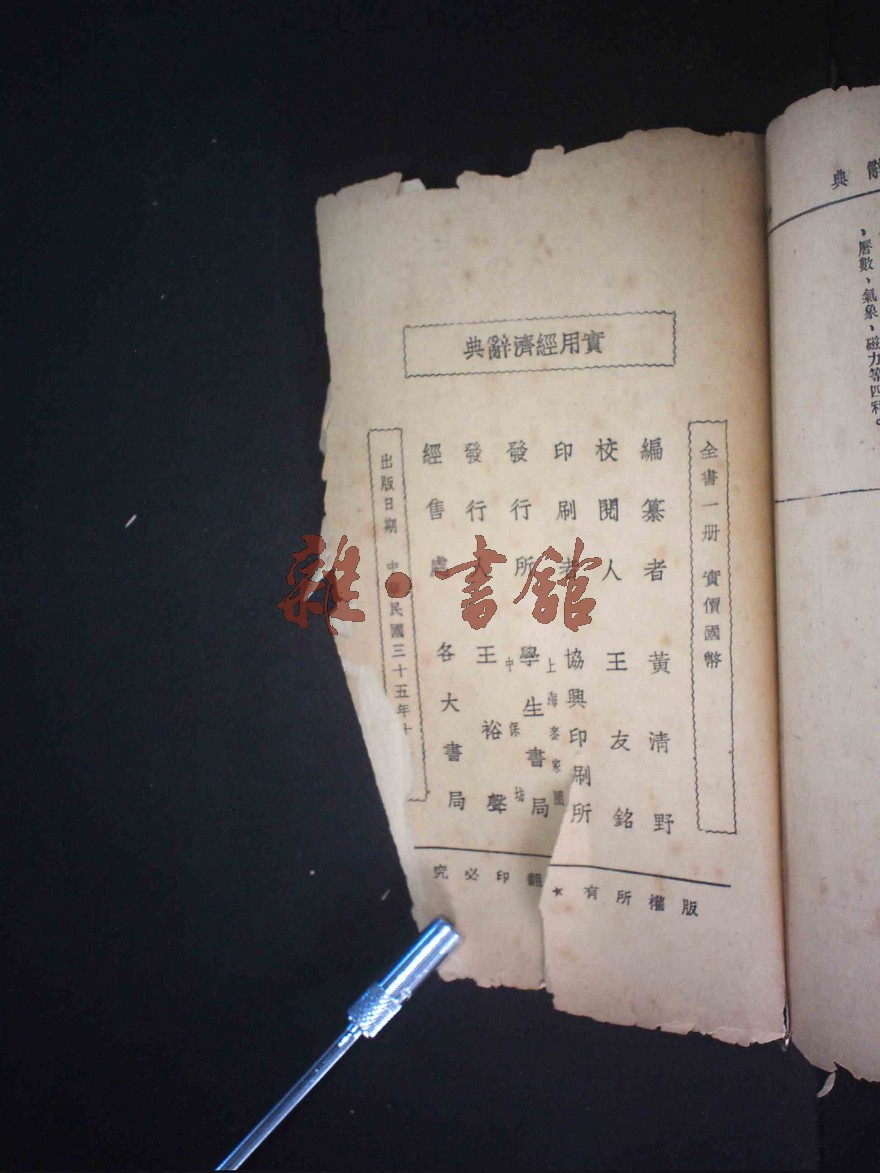 實用經濟辭典
全書一册 實價國幣
編纂者 黃清野
校閱人 王友銘
印刷者 協興印刷所
上海麥家圈
發行所 學生書局
中保坊
發行人 王裕聲
經售處 各大書局
出版日期 中華民國三十五年十
版權所有★翻印必究
辭典
、曆數、氣象、磁力等四科。
雜·書館